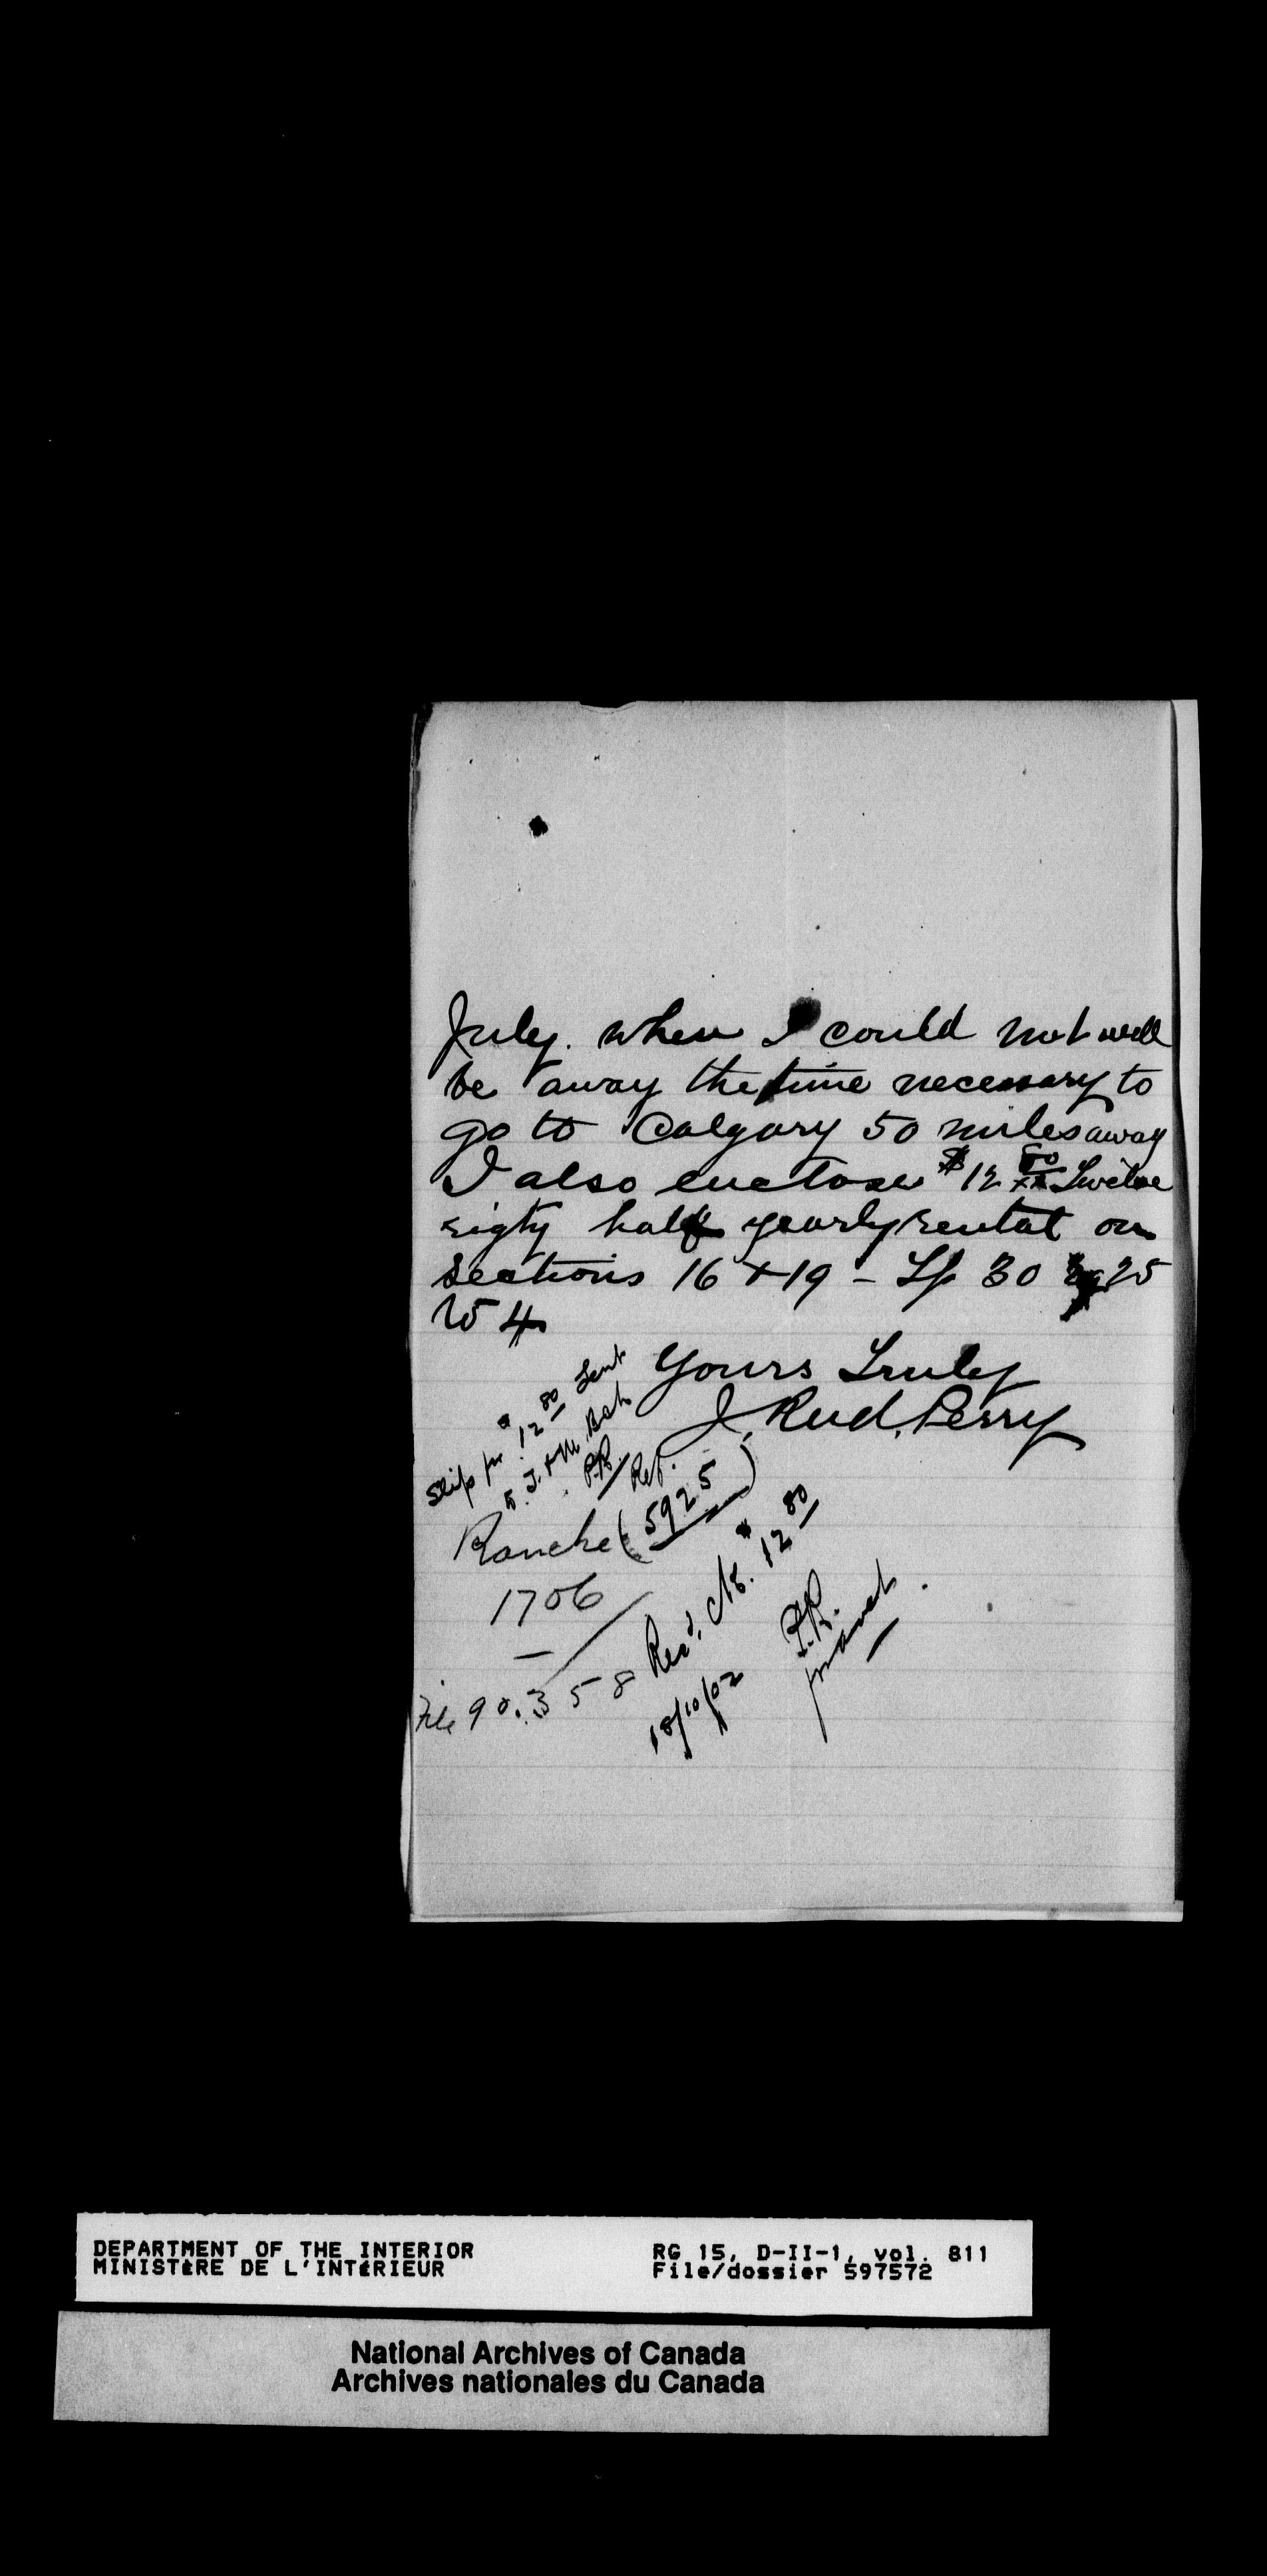 July. when I could not well
be away the time necessary to
go to Calgary 50 miles away
I also enclose $12 80/xx Twelve
eigty half yearly rental on
Sections 16 + 19 - Tp 30 Rg 25
W 4
Yours Truly
J. Rud. Perry
Slip for $12 80 Sent
P.R.
Ref.
Ranche (5925)
1706
File 90.358
Rec'd. Ck. $12 80
18/10/02
P.R.
DEPARTMENT OF THE INTERIOR
MINISTÈRE DE L'INTÉRIEUR
RG 15, D-II-1, vol. 811
File/dossier 597572
National Archives of Canada
Archives nationales du Canada